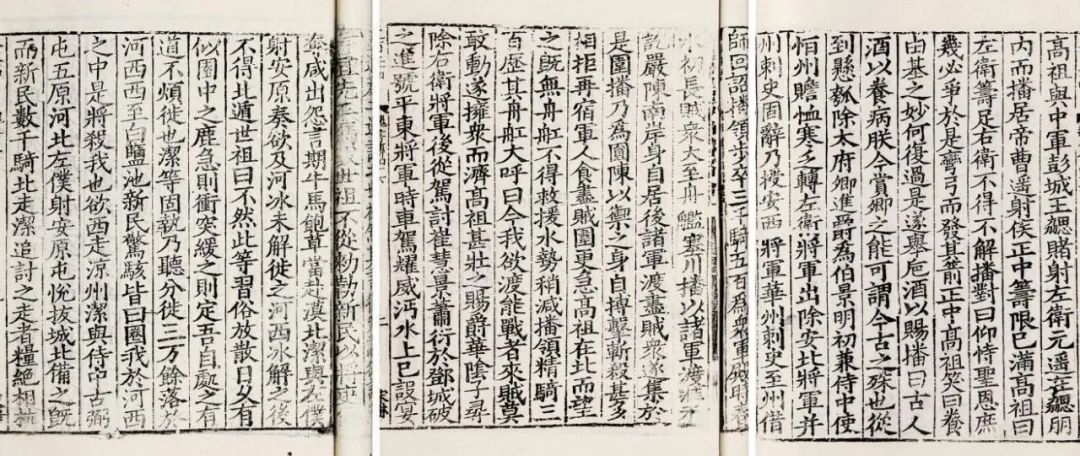 祖不從敕勒新民以將吏
奪咸出怨言期牛馬飽草當赴漠北潔與左僕
射安原奏欲及河冰未解徙之河西冰解之後
不得北遁世祖曰不然此等習俗放散日久有
似園中之鹿急則衝突緩之則定吾自處之有
道不煩徙也潔等固執乃聽分徙三万餘落於
河西西至白鹽池新民驚駭皆曰圈我於河西
之中是將殺我也欲西走涼州潔與侍中古弼
屯五原河北左僕射安原屯悅拔城北備之既
而新民數千騎北走潔追討之走者糧絕相枕
水初長賊眾大至舟艦塞川播以諸軍渡淮未
訖嚴陳南岸身自居後諸軍渡盡賊眾遂集於
是圍播乃為圓陳以禦之身自搏擊斬殺甚多
相拒再宿軍人食盡賊圍更急高祖在北而望
之既無舟舡不得救援水勢稍減播領精騎三
百歷其舟舡大呼曰今我欲渡能戰者來賊莫
敢動遂擁眾而濟高祖甚壯之賜爵華陰子尋
除右衛將軍後從駕討崔慧景蕭衍於鄧城破
之進號平東將軍時車駕耀威沔水上巳設宴
高祖與中軍彭城王勰賭射左衛元遙在勰朋
內而播居帝曹遙射侯正中籌限已滿高祖曰
左衛籌足右衛不得不解播對曰仰恃聖恩庶
幾必爭於是彎弓而發其箭正中高祖笑曰養
由基之妙何復過是遂舉卮酒以賜播曰古人
酒以養病朕今賞卿之能可謂今古之殊也從
到懸瓠除太府卿進爵為伯景明初兼侍中使
恒州贍恤寒乏轉左衛將軍出除安北將軍并
州刺史固辭乃授安西將軍華州刺史至州借